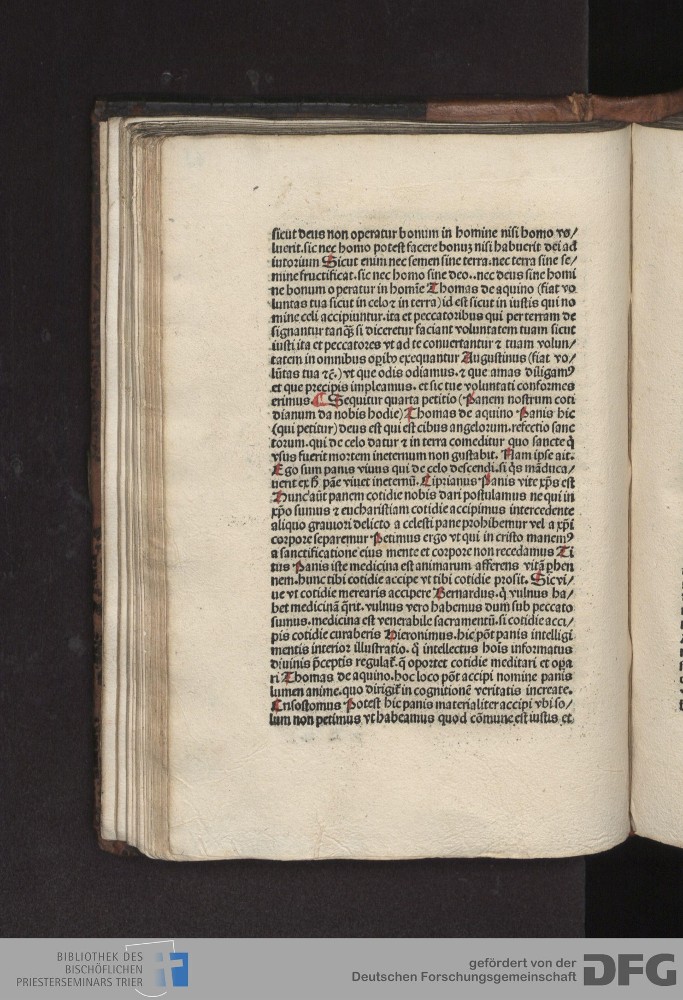 sicut deus non operatur bonum in homine nisi homo vo/
luerit. sic nec homo potest facere bonuʒ nisi habuerit dei ad
iutorium Sicut enim nec semen sine terra. nec terra sine se/
mine fructificat. sic nec homo sine deo.. nec deus sine homi
ne bonum operatur in homīe Thomas de aquino (fiat vo
luntas tua sicut in celo ⁊ in terra) id est sicut in iustis qui no
mine celi accipiuntur. ita et peccatoribus qui per terram de
signantur tanq̄ȝ si diceretur faciant voluntatem tuam sicut
iusti ita et peccatores vt ad te conuertantur ⁊ tuam volun/
tatem in omnibus oꝑibꝰ exequantur Augustinus (fiat vo/
lūtas tua ⁊c̄.) vt que odis odiamus. ⁊ que amas diligamꝰ
et que precipis impleamus. et sic tue voluntati conformes
erimus. ¶ Sequitur quarta petitio (Panem nostrum coti
dianum da nobis hodie) Thomas de aquino Panis hic
(qui petitur) deus est qui est cibus angelorum. refectio sanc
torum. qui de celo datur ⁊ in terra comeditur quo sancte q̇
vsus fuerit mortem ineternum non gustabit. Nam ipse ait.
Ego sum panis viuus qui de celo descendi. si q̇s māduca/
uerit ex ħ pāe viuet ineternū. Ciprianus Panis vite xp̄s est
Hunc aūt panem cotidie nobis dari postulamus ne qui in
xp̄o sumus ⁊ eucharistiam cotidie accipimus intercedente
aliquo grauiori delicto a celesti pane prohibemur vel a xp̄i
corpore separemur Petimus ergo vt qui in cristo manemꝰ
a sanctificatione eius mente et corpore non recedamus Ti
tus Panis iste medicina est animarum afferens vitā ꝑhen
nem. hunc tibi cotidie accipe vt tibi cotidie prosit. Sic vi/
ue vt cotidie merearis accipere Bernardus. q̇ vulnus ha/
bet medicinā q̄rit. vulnus vero habemus dum sub peccato
sumus. medicina est venerabile sacramentū. si cotidie acci/
pis cotidie curaberis Hieronimus. hic pōt panis intelligi
mentis interior illustratio. q̇ intellectus hoīs informatus
diuinis p̄ceptis regulaꝛ̄. q̄ oportet cotidie meditari et oꝑa
ri Thomas de aquino. hoc loco pōt accipi nomine panis
lumen anime. quo dirigiꝛ̄ in cognitionē veritatis increate.
Crisostomus Potest hic panis materialiter accipi vbi so/
lum non petimus vt habeamus quod cōmune est iustis et
BIBLIOTHEK DES
BISCHÖFLICHEN
PRIESTERSEMINARS TRIER
gefördert von der
Deutschen Forschungsgemeinschaft
DFG